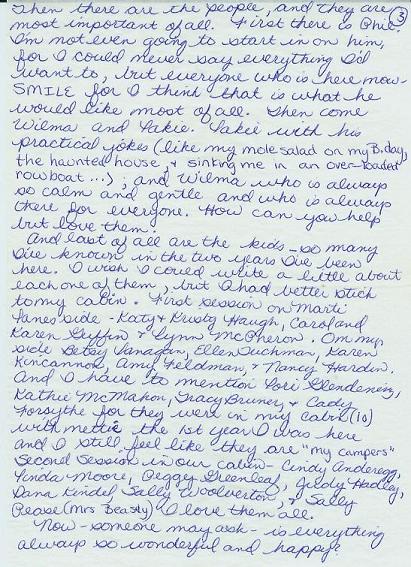 Then there are the people, and they are
3
most important of all. First there is Phil.
I'm not even going to start in on him,
for I could never say everything I'd
want to, but everyone who is here now -
SMILE for I think that is what he
would like most of all. Then come
Wilma and Sakie. Sakie with his
practical jokes (like my mole salad on my B.day,
the haunted house, & sinking me in an over-loaded
rowboat...); and Wilma who is always
so calm and gentle and who is always
there for everyone. How can you help
but love them?
And last of all are the kids - so many
I've known in the two years I've been
here. I wish I could write a little about
each one of them, but I had better stick
to my cabin. First session on Marti
Lanes side - Katy & Kristy Haugh, Carol and
Karen Griffin & Lynn McPheron. On my
side Betsy Vanagan, Ellen Suchman, Karen
Kincannon, Amy Feldman, & Nancy Hardin.
And I have to mention Lori Glendening,
Kathie McMahon, Tracy Bruner & Cady
Forsythe for they were in my cabin (10)
with mettie the 1st year I was here
and I still feel like they are "my campers"
Second Session in our cabin - Cindy Anderegg,
Linda Moore, Peggy Greenleaf, Hadley,
Dana Kindel, Sally Woolverton, & Sally
Pease (Mrs Beasty) I love them all.
Now - someone may ask - is everything
always so wonderful and happy?